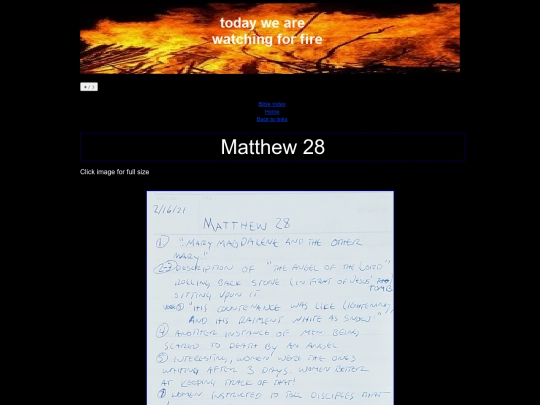 today we are
watching for fire
Bible index
Home
Back to links
Matthew 28
Click image for full size
2/16/21
MATTHEW 28
① "MARY MAGDALENE AND THE OTHER
MARY"
DESCRIPTION OF "THE ANGEL OF THE LORD"
ROLLING BACK STONE (IN FRONT OF JESUS'
TOMB)
SITTING UPON IT
"HIS COUNTENANCE WAS LIKE LIGHTENING,
AND HIS RAIMENT WHITE AS SNOW"
④ ANOTHER INSTANCE OF MEN BEING
SCARED TO DEATH BY AN ANGEL
⑤ INTERESTING, WOMEN WERE THE ONES
WAITING AFTER 3 DAYS. WOMEN BETTER
AT KEEPING TRACK OF THAT!
WOMEN INSTRUCTED TO TELL DISCIPLES THAT